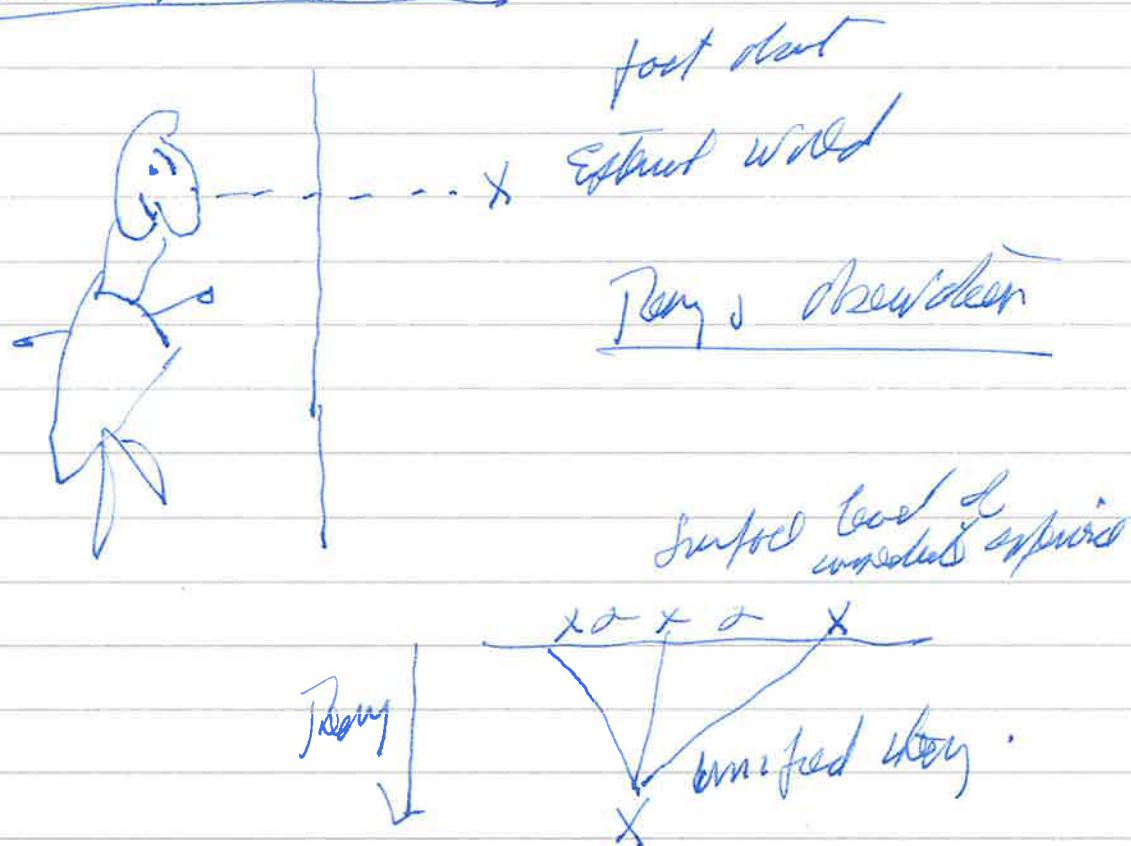 fact about
External world
X
Theory & observation
Surface level of
immediate experience
x x X
Theory
unified theory.
X